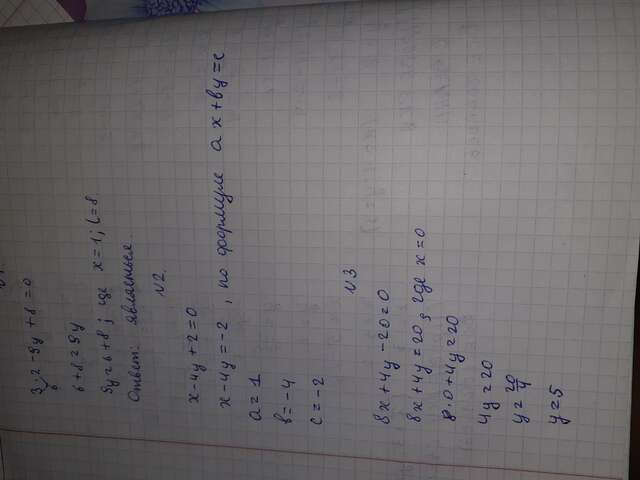 3·2-9y+8=0
6
6+8=9y
9y=6+8; где x=1; C=8.
Ответ: является.
N2.
x-4y+2=0
x-4y=-2, по формуле ax+by=c
a=1
b=-4
c=-2
N3
8x+4y-20=0
8x+4y=20, где x=0
8·0+4y=20
4y=20
y=20/4
y=5